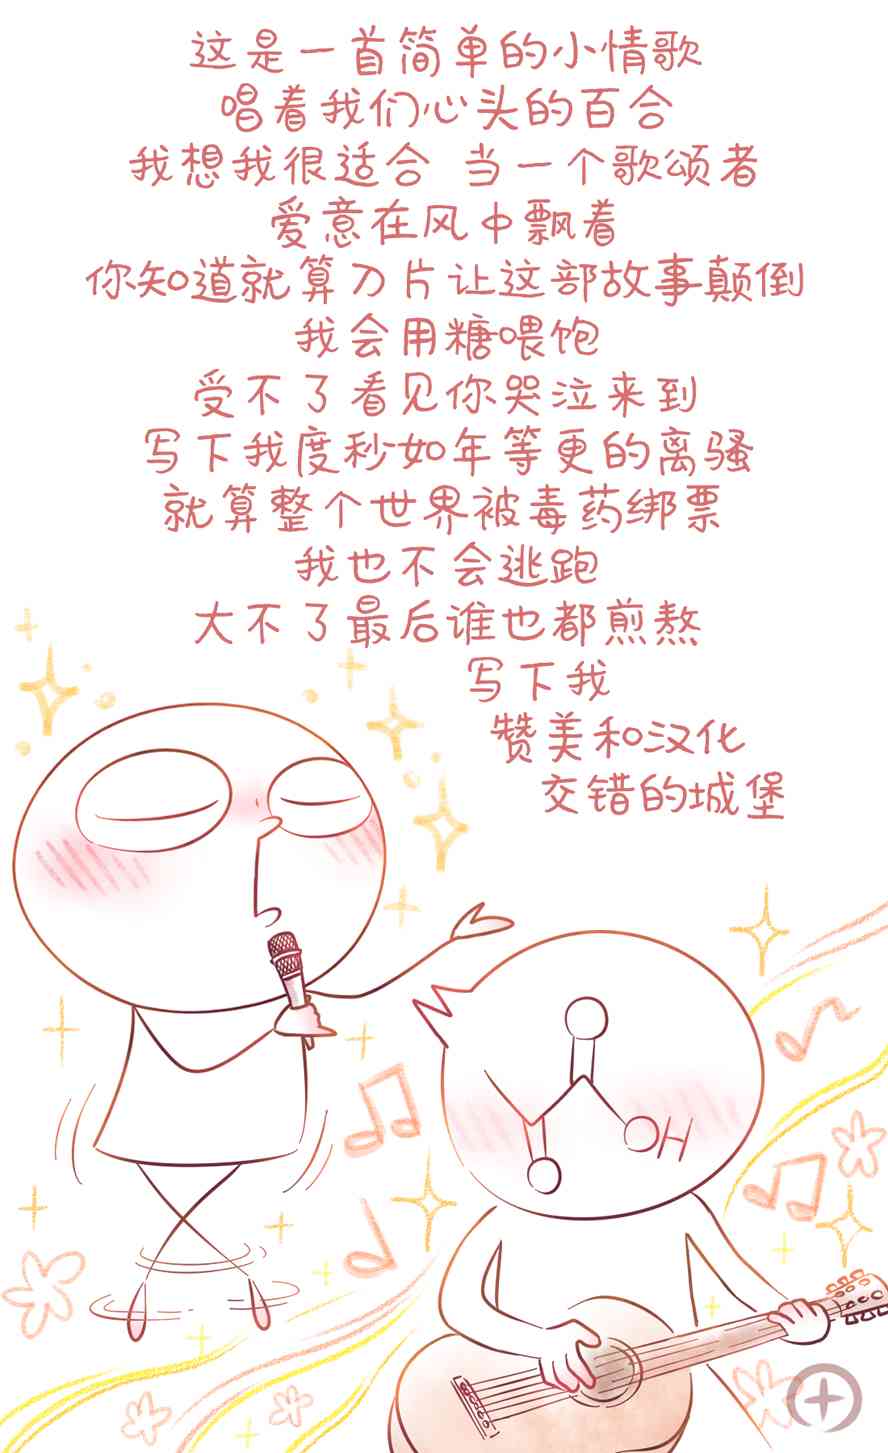 这是一首简单的小情歌
唱着我们心头的百合
我想我很适合 当一个歌颂者
爱意在风中飘着
你知道就算刀片让这部故事颠倒
我会用糖喂饱
受不了看见你哭泣来到
写下我度秒如年等更的离骚
就算整个世界被毒药绑票
我也不会逃跑
大不了最后谁也都煎熬
写下我
赞美和汉化
交错的城堡
OH